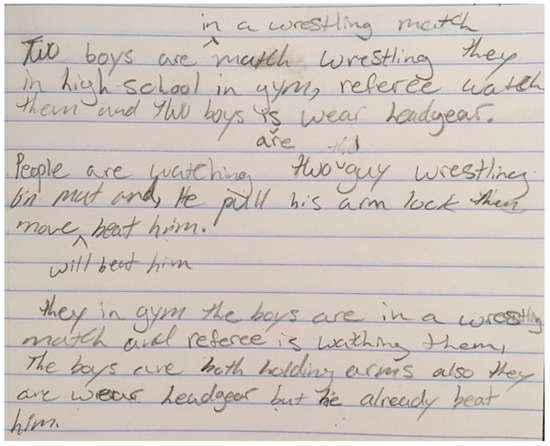 in a wrestling match
Two boys are ^ match wrestling they
in high school in gym, referee watch
them and two boys is wear headgear.
are
People are watching two guy wrestling
on mat and, He pull his arm lock then
move ^ beat him.
will beat him
they in gym the boys are in a wrestling
match and referee is wathing them,
The boys are both holding arms also they
are wear headgear but he already beat
him.